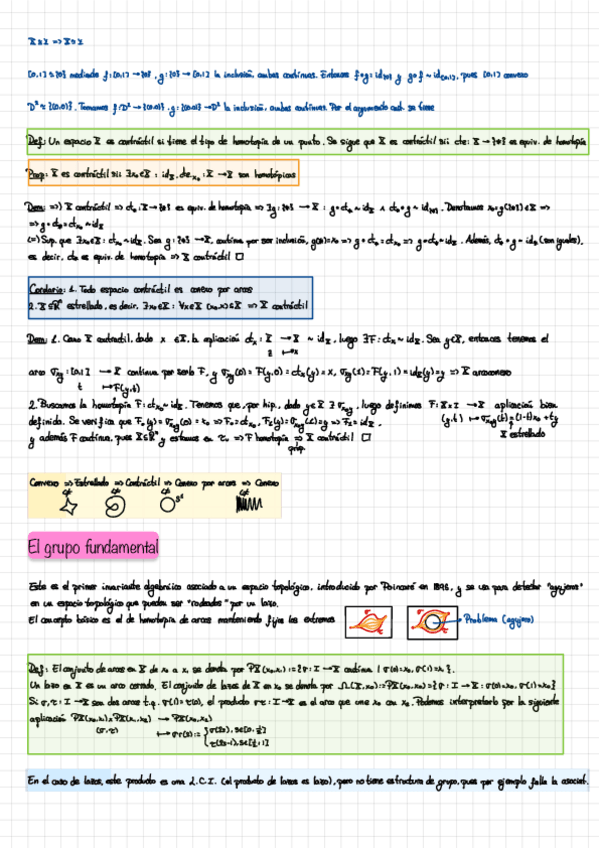 X≅Y => X≃Y
[0,1]≃{0} mediante f:[0,1]→{0}, g:{0}→[0,1] la inclusión, ambas continuas. Entonces f∘g=id{0} y g∘f∼id[0,1], pues [0,1] convexo
D²≃{(0,0)}. Tomamos f:D²→{(0,0)}, g:{(0,0)}→D² la inclusión, ambas continuas. Por el argumento ant. se tiene
Def: Un espacio X es contráctil si tiene el tipo de homotopía de un punto. Se sigue que X es contráctil sii cte: X→{*} es equiv. de homotopía
Prop: X es contráctil sii ∃x₀∈X : id_X, cte_x₀: X→X son homotópicas
Dem: =>) X contráctil => ct₀: X→{0} es equiv. de homotopía => ∃g:{0}→X : g∘ct₀∼id_X ∧ ct₀∘g∼id{0}. Denotamos x₀=g({0})∈X =>
=> g∘ct₀=ct_x₀∼id_X
(<=) Sup. que ∃x₀∈X: ct_x₀∼id_X. Sea g:{0}→X, continua por ser inclusión, g(0)=x₀ => g∘ct₀=ct_x₀ => g∘ct₀∼id_X. Además, ct₀∘g=id₀ (son iguales),
es decir, ct₀ es equiv. de homotopía => X contráctil □
Corolario: 1. Todo espacio contráctil es conexo por arcos
2. X⊆ℝⁿ estrellado, es decir, ∃x₀∈X : ∀x∈X [x₀,x]⊂X => X contráctil
Dem: 1. Como X contráctil, dado x∈X, la aplicación ct_x: X→X ∼ id_X, luego ∃F: ct_x∼id_X. Sea y∈X, entonces tenemos el
z ↦ x
arco σ_xy: [0,1]→X continua por serlo F, y σ_xy(0)=F(y,0)=ct_x(y)=x, σ_xy(1)=F(y,1)=id_X(y)=y => X arcoconexo
t ↦ F(y,t)
2. Buscamos la homotopía F: ct_x₀∼id_X. Tenemos que, por hip., dado y∈X ∃ σ_x₀y, luego definimos F: X×I→X aplicación bien
(y,t) ↦ σ_x₀y(t)=(1-t)x₀+ty
definida. Se verifica que F₀(y)=σ_x₀y(0)=x₀ => F₀=ct_x₀, F₁(y)=σ_x₀y(1)=y => F₁=id_X,
X estrellado
y además F continua, pues X⊆ℝⁿ y estamos en τᵤ => F homotopía => X contráctil □
prop.
Convexo => Estrellado => Contráctil => Conexo por arcos => Conexo
S¹
El grupo fundamental
Este es el primer invariante algebráico asociado a un espacio topológico, introducido por Poincaré en 1896, y se usa para detectar "agujeros"
en un espacio topológico que puedan ser "rodeados" por un lazo.
El concepto básico es el de homotopía de arcos manteniendo fijos los extremos
Problema (agujero)
Def: El conjunto de arcos en X de x₀ a x₁ se denota por PX(x₀,x₁):={σ: I→X continua | σ(0)=x₀, σ(1)=x₁}.
Un lazo en X es un arco cerrado. El conjunto de lazos de X en x₀ se denota por Ω(X,x₀):=PX(x₀,x₀)={σ: I→X: σ(0)=x₀, σ(1)=x₀}
Si σ,τ: I→X son dos arcos t.q. σ(1)=τ(0), el producto στ: I→X es el arco que une x₀ con x₂. Podemos interpretarlo por la siguiente
aplicación PX(x₀,x₁)×PX(x₁,x₂) → PX(x₀,x₂)
(σ,τ) ↦ στ(s):={σ(2s), s∈[0,½]
τ(2s-1), s∈[½,1]
En el caso de lazos, este producto es una L.C.I. (el producto de lazos es lazo), pero no tiene estructura de grupo, pues por ejemplo falla la asociat.